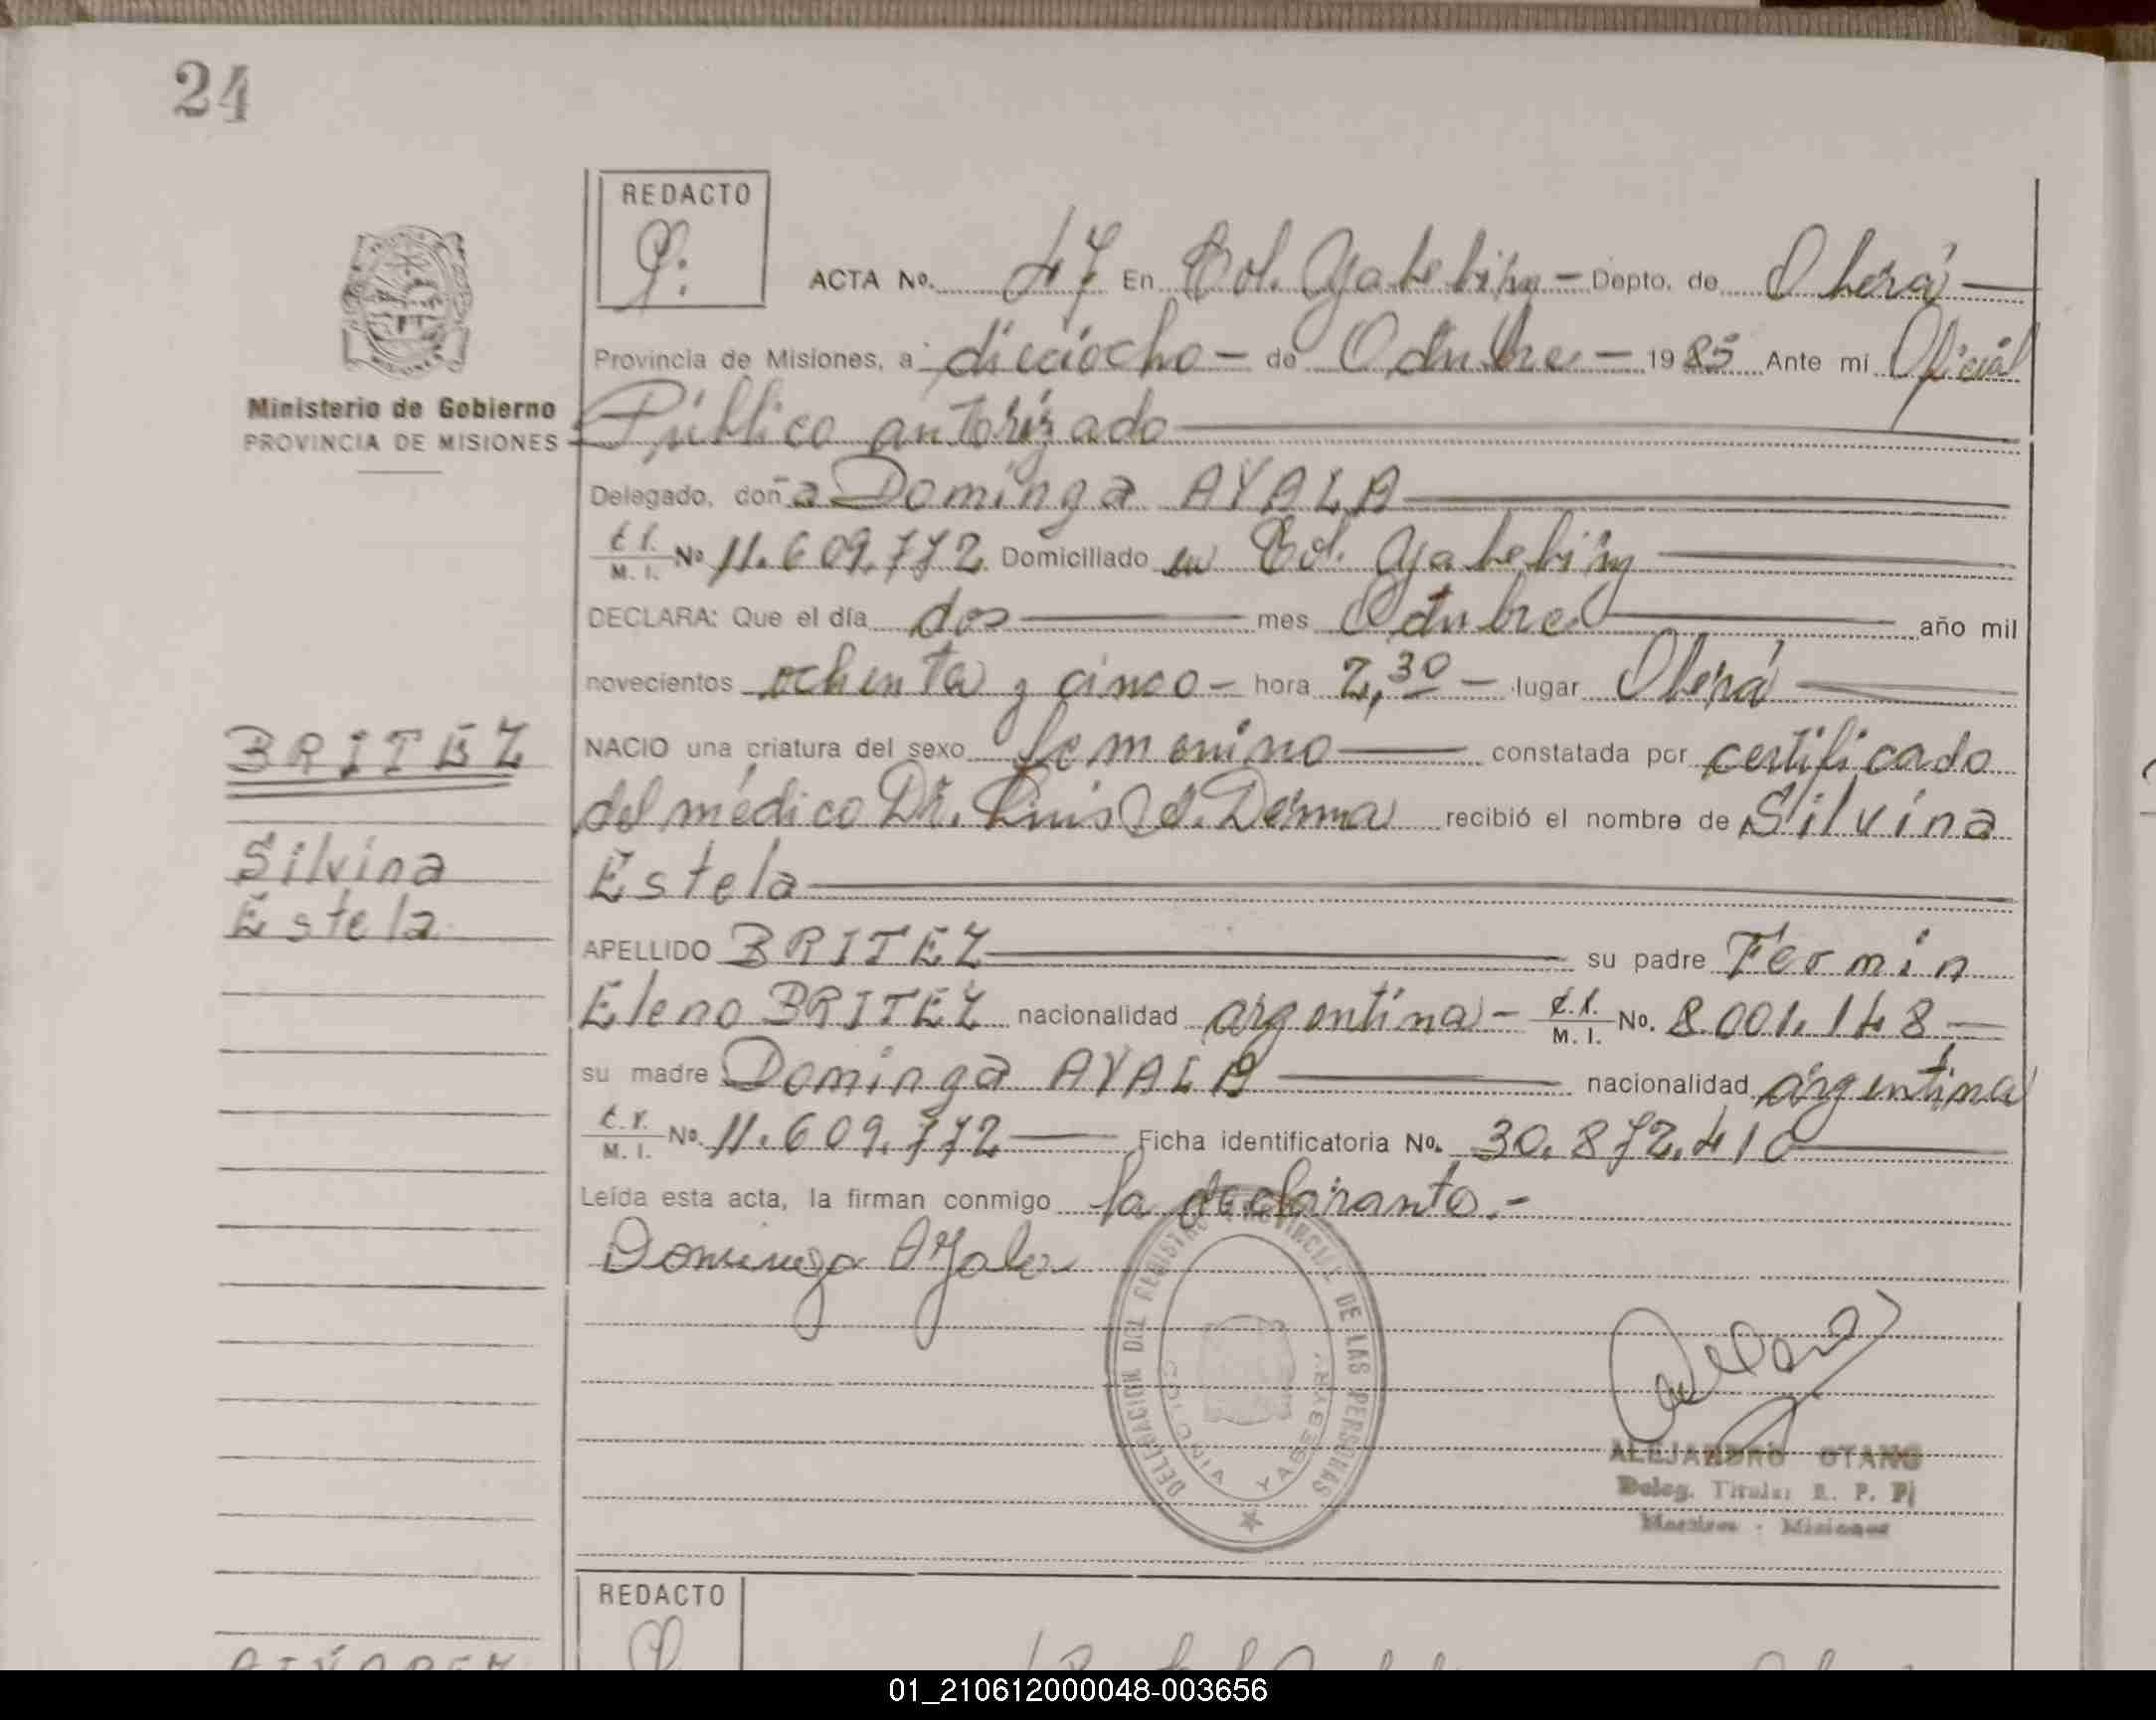 24
REDACTO
ACTA No. 47 En Col. Yabebiry - Depto. de Oberá
Provincia de Misiones, a dieciocho - de Octubre - 1985 Ante mi Oficial
Ministerio de Gobierno
Público autorizado
PROVINCIA DE MISIONES
Delegado, doña Dominga AYALA
C.I. M. I. No 11.609.772 Domiciliado en Col. Yabebiry
DECLARA: Que el día dos mes Octubre año mil
novecientos ochenta y cinco - hora 2,30 - lugar Oberá
BRITEZ
NACIO una criatura del sexo femenino constatada por certificado
del médico Dr. Luis Derma recibió el nombre de Silvina
Silvina
Estela
Estela
APELLIDO BRITEZ su padre Fermin
Eleno BRITEZ nacionalidad argentina - C.I. M. I. No. 8.001.148
su madre Dominga AYALA nacionalidad argentina
C.I. M. I. No. 11.609.772 Ficha identificatoria No. 30.872.410
Leída esta acta, la firman conmigo la declarante.-
Dominga Ayala
DELEGACION DEL REGISTRO PROVINCIAL DE LAS PERSONAS
COLONIA YABEBYRY
ALEJANDRO OTANO
Deleg. Titular R. P. P.
Misiones
REDACTO
01_210612000048-003656